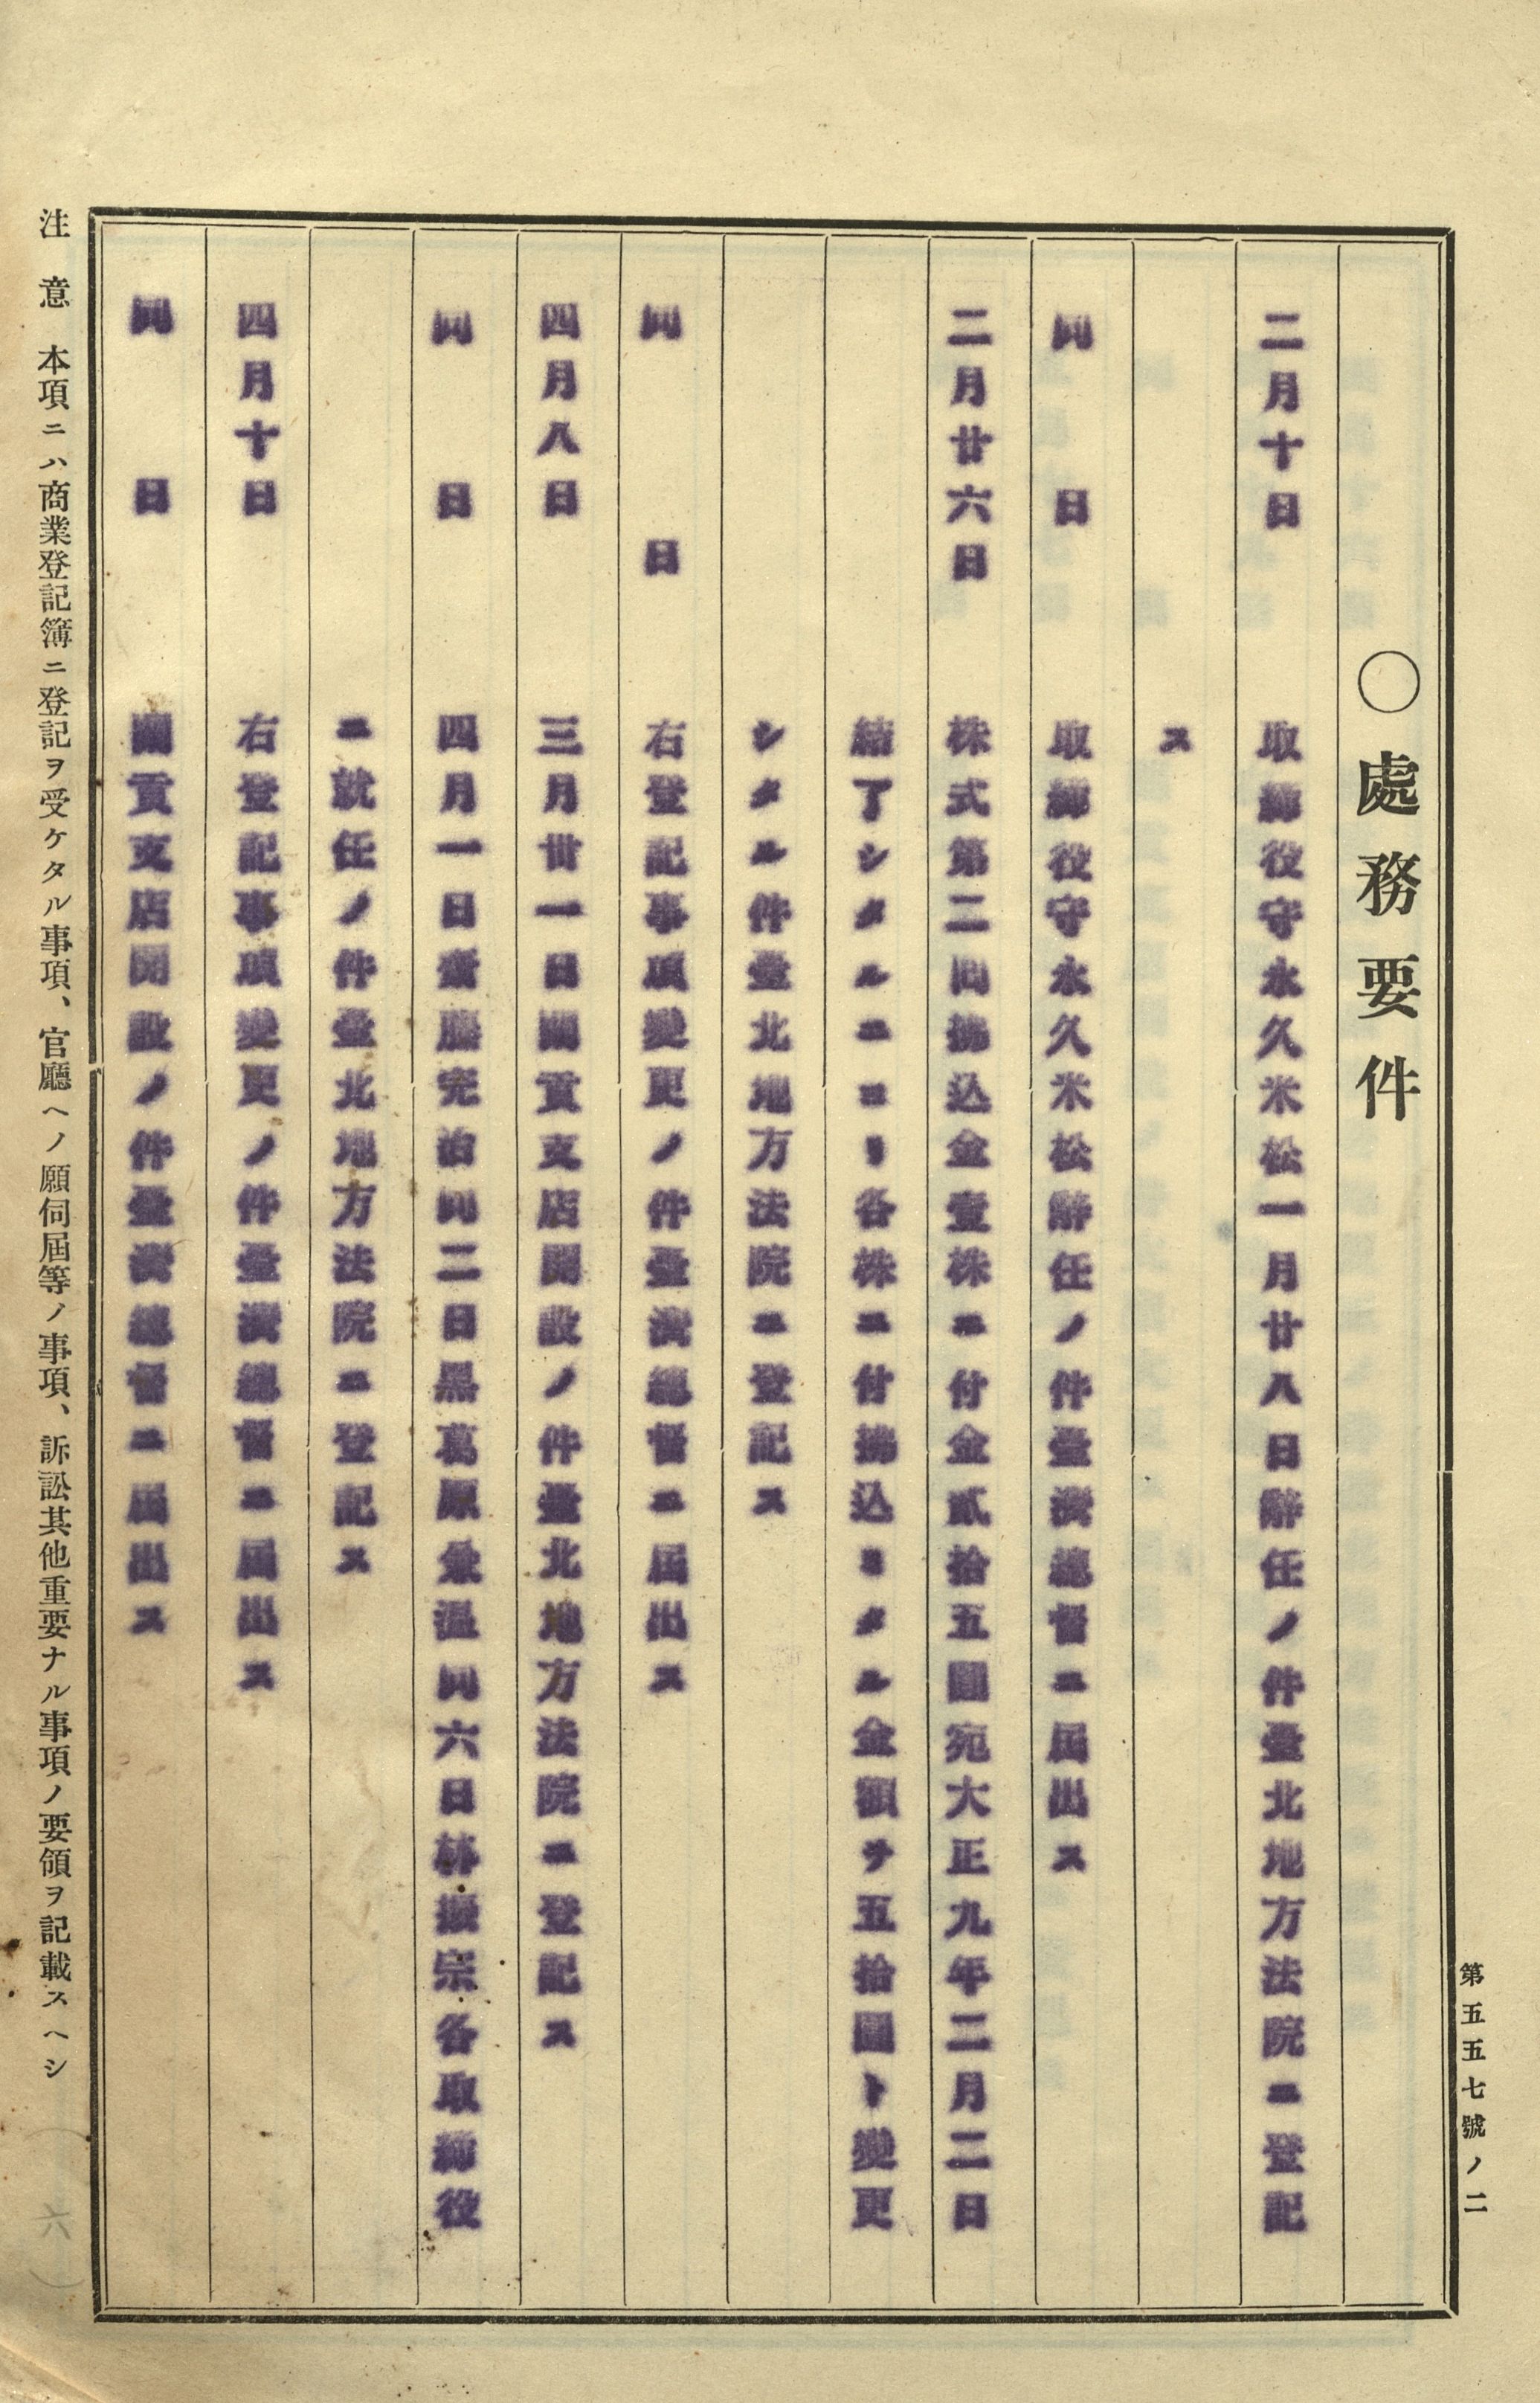 第五五七號ノ二
○處務要件
二月十日 取締役守永久米松一月廿八日辭任ノ件臺北地方法院ニ登記
ス
同日 取締役守永久米松辭任ノ件臺灣總督ニ屆出ス
二月廿六日 株式第二回拂込金壹株ニ付金貳拾五圓宛大正九年二月二日
結了シタルニヨリ各株ニ付拂込ミタル金額ヲ五拾圓ト變更
シタル件臺北地方法院ニ登記ス
同日 右登記事項變更ノ件臺灣總督ニ屆出ス
四月八日 三月卅一日蘭貢支店開設ノ件臺北地方法院ニ登記ス
同日 四月一日齋藤完治同二日黑葛原兼溫同六日林熊宗各取締役
ニ就任ノ件臺北地方法院ニ登記ス
四月十日 右登記事項變更ノ件臺灣總督ニ屆出ス
同日 蘭貢支店開設ノ件臺灣總督ニ屆出ス
注意 本項ニハ商業登記簿ニ登記ヲ受ケタル事項、官廳ヘノ願伺屆等ノ事項、訴訟其他重要ナル事項ノ要領ヲ記載スヘシ
(六)